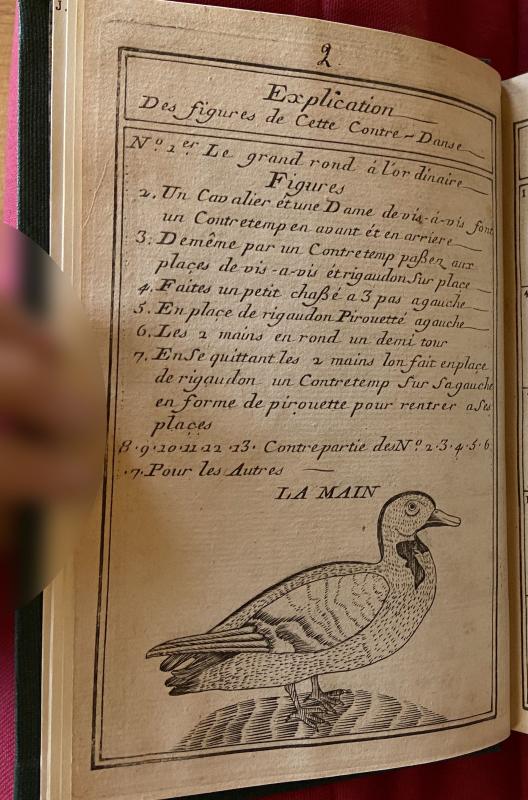 2
Explication
Des figures de Cette Contre-Danse
Nº 1er Le grand rond á l'ordinaire
Figures
2. Un Cavalier et une Dame de vis-á-vis font
un Contretemp en avant ét en arriere
3. Demême par un Contretemp paßez aux
plaçes de vis-a-vis ét rigaudon Sur place
4. Faites un petit chaßé a 3 pas agauche
5. En plaçe de rigaudon Pirouetté agauche
6. Les 2 mains en rond un demi tour
7. En Se quittant les 2 mains lon fait en plaçe
de rigaudon un Contretemp Sur Sa gauche
en forme de pirouette pour rentrer a Ses
plaçes
8.9.10.11.12.13. Contrepartie des Nº 2.3.4.5.6
.7. Pour les Autres
LA MAIN